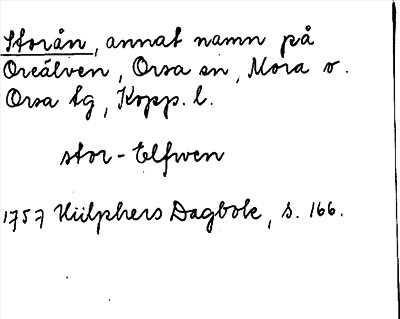 Storån, annat namn på
Oreälven, Orsa sn, Mora o.
Orsa tg, Kopp. l.
stor-Elfwen
1757 Hülphers Dagbok, s. 166.